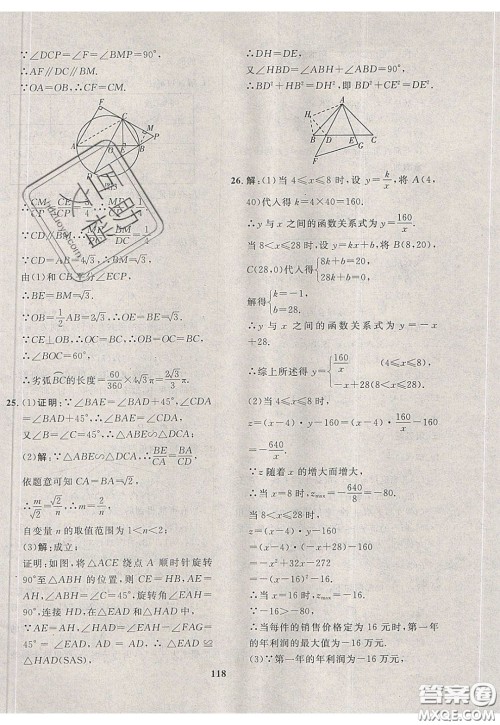 ∵∠DCP=∠F=∠BMP=90°,
∴AF∥DC∥BM.
∵OA=OB,∴CF=CM.
∵CD∥BM,∴
∵CD=AB=4√3,∴
由(1)和CB平分∠ECP,
∴BE=BM=√3.
∵OB=1/2 AB=2√3,∴OE=BE=√3.
∵CE⊥OB,∴OC=CB,∴OB=OC=BC,
∴∠BOC=60°,
∴劣弧BC的长度=60/360×4√3π=2√3/3 π.
25.(1)证明:∵∠BAE=∠BAD+45°,∠CDA
=∠BAD+45°,∴∠BAE=∠CDA,
又∠B=∠C=45°,∴△ABE∽△DCA.
(2)解:∵△ABE∽△DCA,∴BE/CA=BA/CD.
依题意可知CA=BA=√2,
∴m/√2=√2/n,∴m=2/n,
自变量n的取值范围为1<n<2;
(3)解:成立;
证明:如图,将△ACE绕点A顺时针旋转
90°至△ABH的位置,则CE=HB,
AE=AH,∠ABH=∠C=45°,旋转角∠EAH
=90°,连接HD,在△EAD和△HAD中,
∵AE=AH,∠EAD=∠HAD,AD=AD,
∴△EAD≌△HAD(SAS),
∴DH=DE,
又∠HBD=∠ABH+∠ABD=90°,
∴BD²+HB²=DH²,即BD²+CE²=DE².
A
H
B
D
E
C
F
G
26.解:(1)当4≤x≤8时,设y=k/x,将A(4,
40)代入得k=4×40=160,
∴y与x之间的函数关系式为y=160/x;
当8<x≤28时,设y=kx+b,将B(8,20),
C(28,0)代入得{8k+b=20,
28k+b=0;
解得{k=-1,
b=28,
∴y与x之间的函数关系式为y=-x+28,
∴综上所述得y={160/x (4≤x≤8),
-x+28(8<x≤28);
(2)当4≤x≤8时,z=(x-4)y-160=(x-4)·160/x-160
=-640/x.
∵z随着x的增大而增大,
∴当x=8时,z_max=-640/8=-80;
当8<x≤28时,
z=(x-4)y-160
=(x-4)(-x+28)-160
=-x²+32x-272
=-(x-16)²-16,
∴当x=16时,z_max=-16;
∵-16>-80,
∴当每件的销售价格定为16元时,第一
年的年利润的最大值为-16万元.
(3)∵第一年的年利润为-16万元,
118
答案圈
MXQE.COM